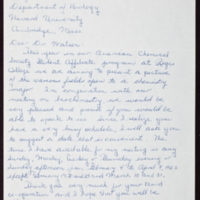 Department of Biology
Harvard University
Cambridge, Mass
Dear Dr. Watson:
This year in our American Chemical
Society Student Affiliate program at Regis
College we are aiming to present a picture
of the various fields open to the chemistry
major. In conjunction with our
meeting on biochemistry we would be
very pleased and proud if you would be
able to speak to us. Since I realize you
have a very busy schedule, I will ask you
to suggest a date that is convenient. The
time I have available for my meeting is any
Sunday, Monday, Tuesday or Thursday evening or
Sunday afternoon in
February
March
Thank you very much for your kind
co-operation and I hope that you will be